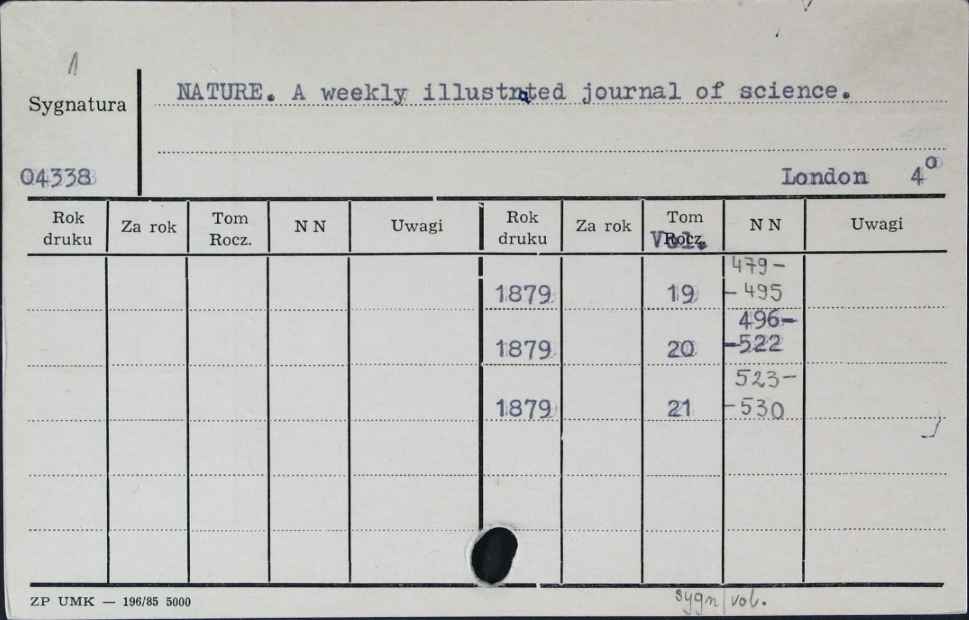 1
NATURE. A weekly illustrated journal of science.
Sygnatura
04338
London 4°
Rok druku Za rok Tom Rocz. N N Uwagi Rok druku Za rok Tom Rocz. Vol. N N Uwagi
479-
1879 19 -495
496-
1879 20 -522
523-
1879 21 -530
ZP UMK — 196/85 5000
sygn/vol.